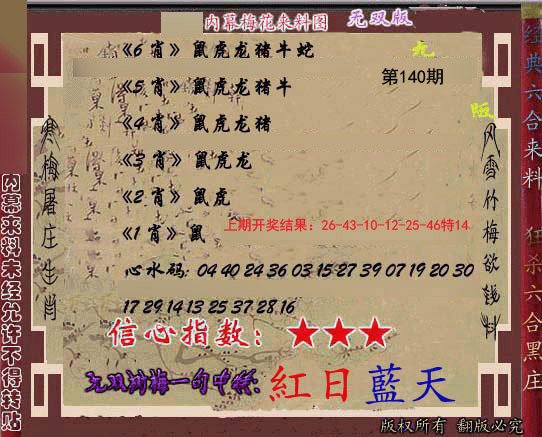 内幕梅花来料图 无双版
《6 肖》 鼠虎龙猪牛蛇
第140期
《5 肖》 鼠虎龙猪牛
《4 肖》 鼠虎龙猪
《3 肖》 鼠虎龙
《2 肖》 鼠虎
《1 肖》 鼠
上期开奖结果：26-43-10-12-25-46特14
心水码：04 40 24 36 03 15 27 39 07 19 20 30
17 29 14 13 25 37 28 16
信心指数：★★★
无双湖梅一句中特：紅日藍天
版权所有 翻版必究
寒梅屠庄生肖
风雪竹梅欲钱料
内幕求料未经允许不得转贴
经典六合来料 狂杀六合黑庄